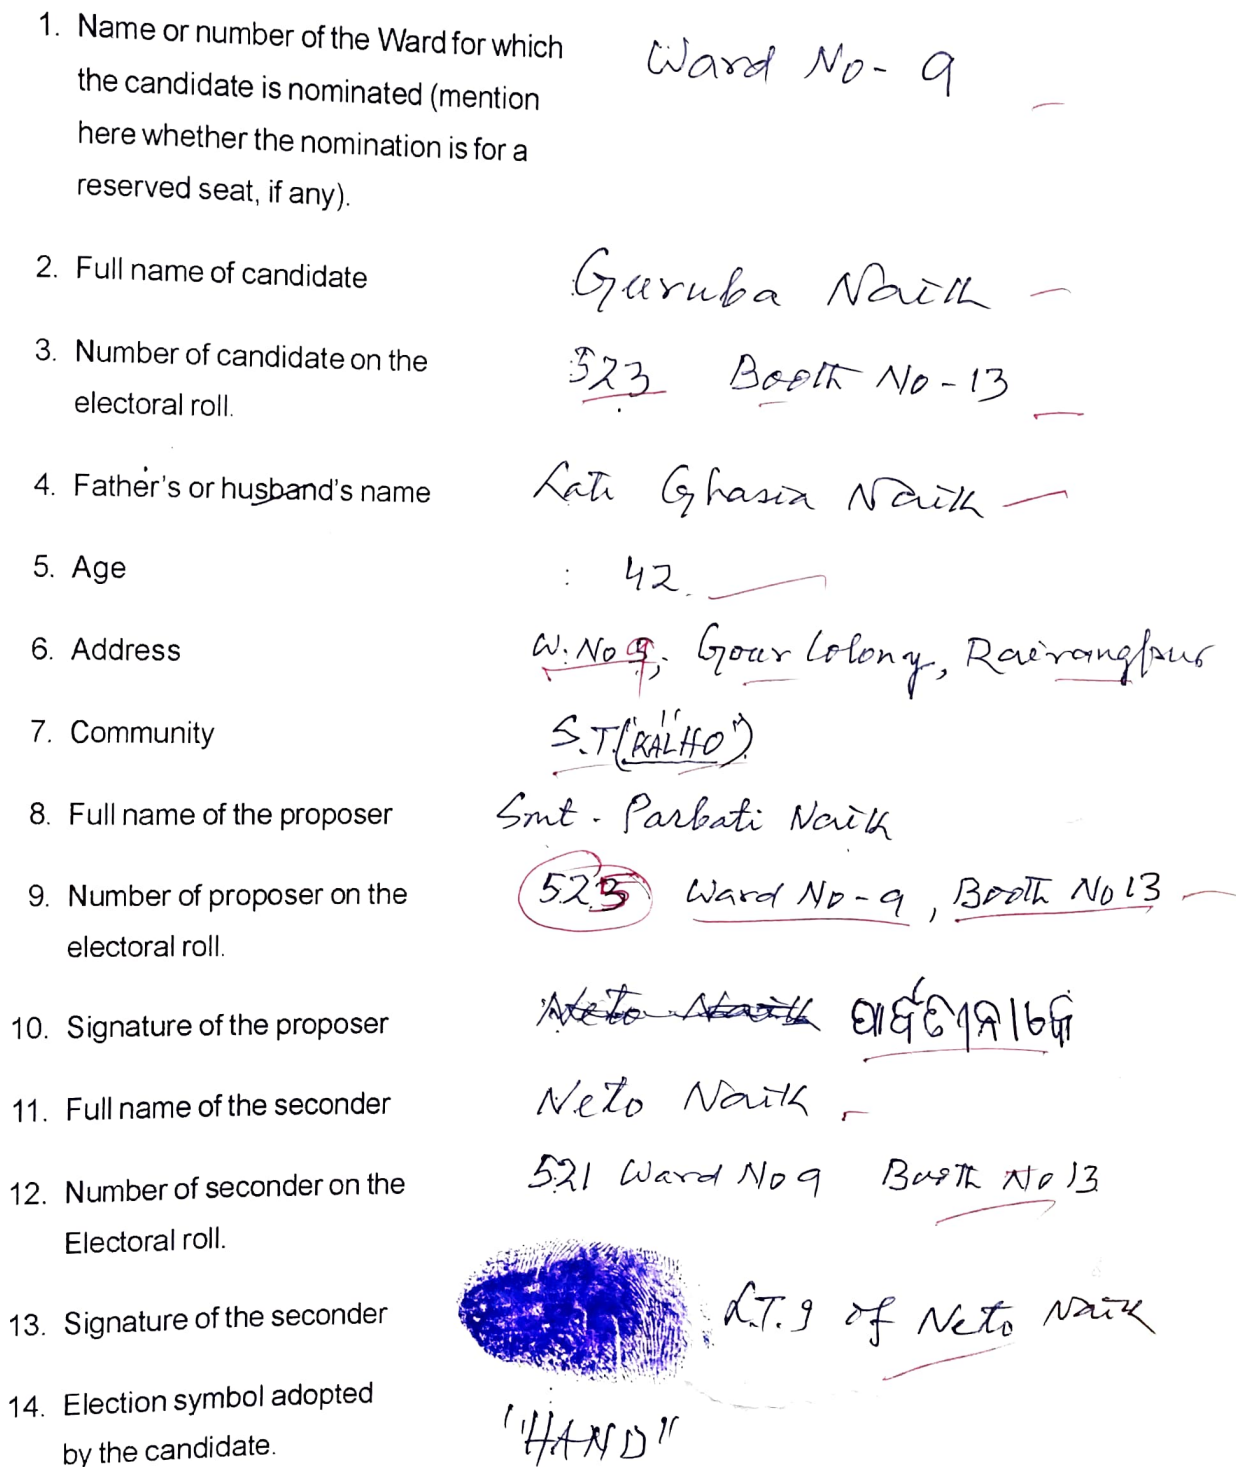 1. Name or number of the Ward for which Ward No - 9
the candidate is nominated (mention
here whether the nomination is for a
reserved seat, if any).
2. Full name of candidate Guruba Naik
3. Number of candidate on the 523 Booth No - 13
electoral roll.
4. Father's or husband's name Late Ghasia Naik
5. Age : 42.
6. Address W. No 9, Gour Colony, Rairangpur
7. Community S.T. ("KALHO")
8. Full name of the proposer Smt. Parbati Naik
9. Number of proposer on the 525 Ward No - 9, Booth No 13
electoral roll.
10. Signature of the proposer Neto Naik ପାର୍ବତୀ ନାଏକ
11. Full name of the seconder Neto Naik
12. Number of seconder on the 521 Ward No 9 Booth No 13
Electoral roll.
13. Signature of the seconder L.T.I of Neto Naik
14. Election symbol adopted "HAND"
by the candidate.